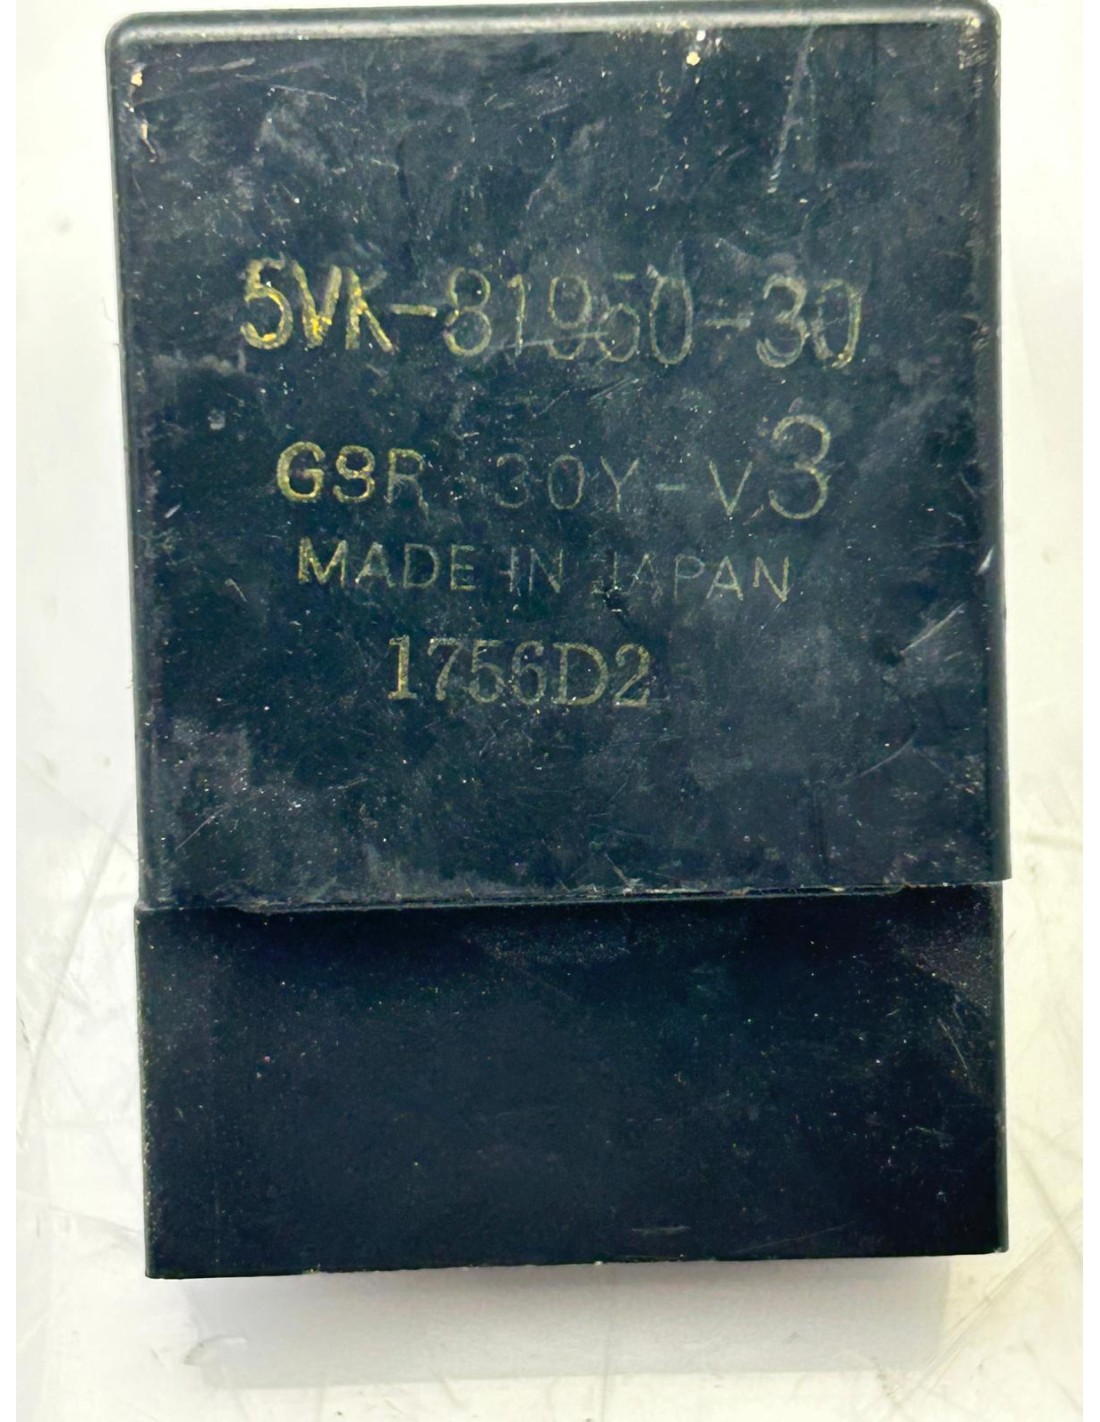 5VK-81950-30
G8R-30Y-V3
MADE IN JAPAN
1756D2